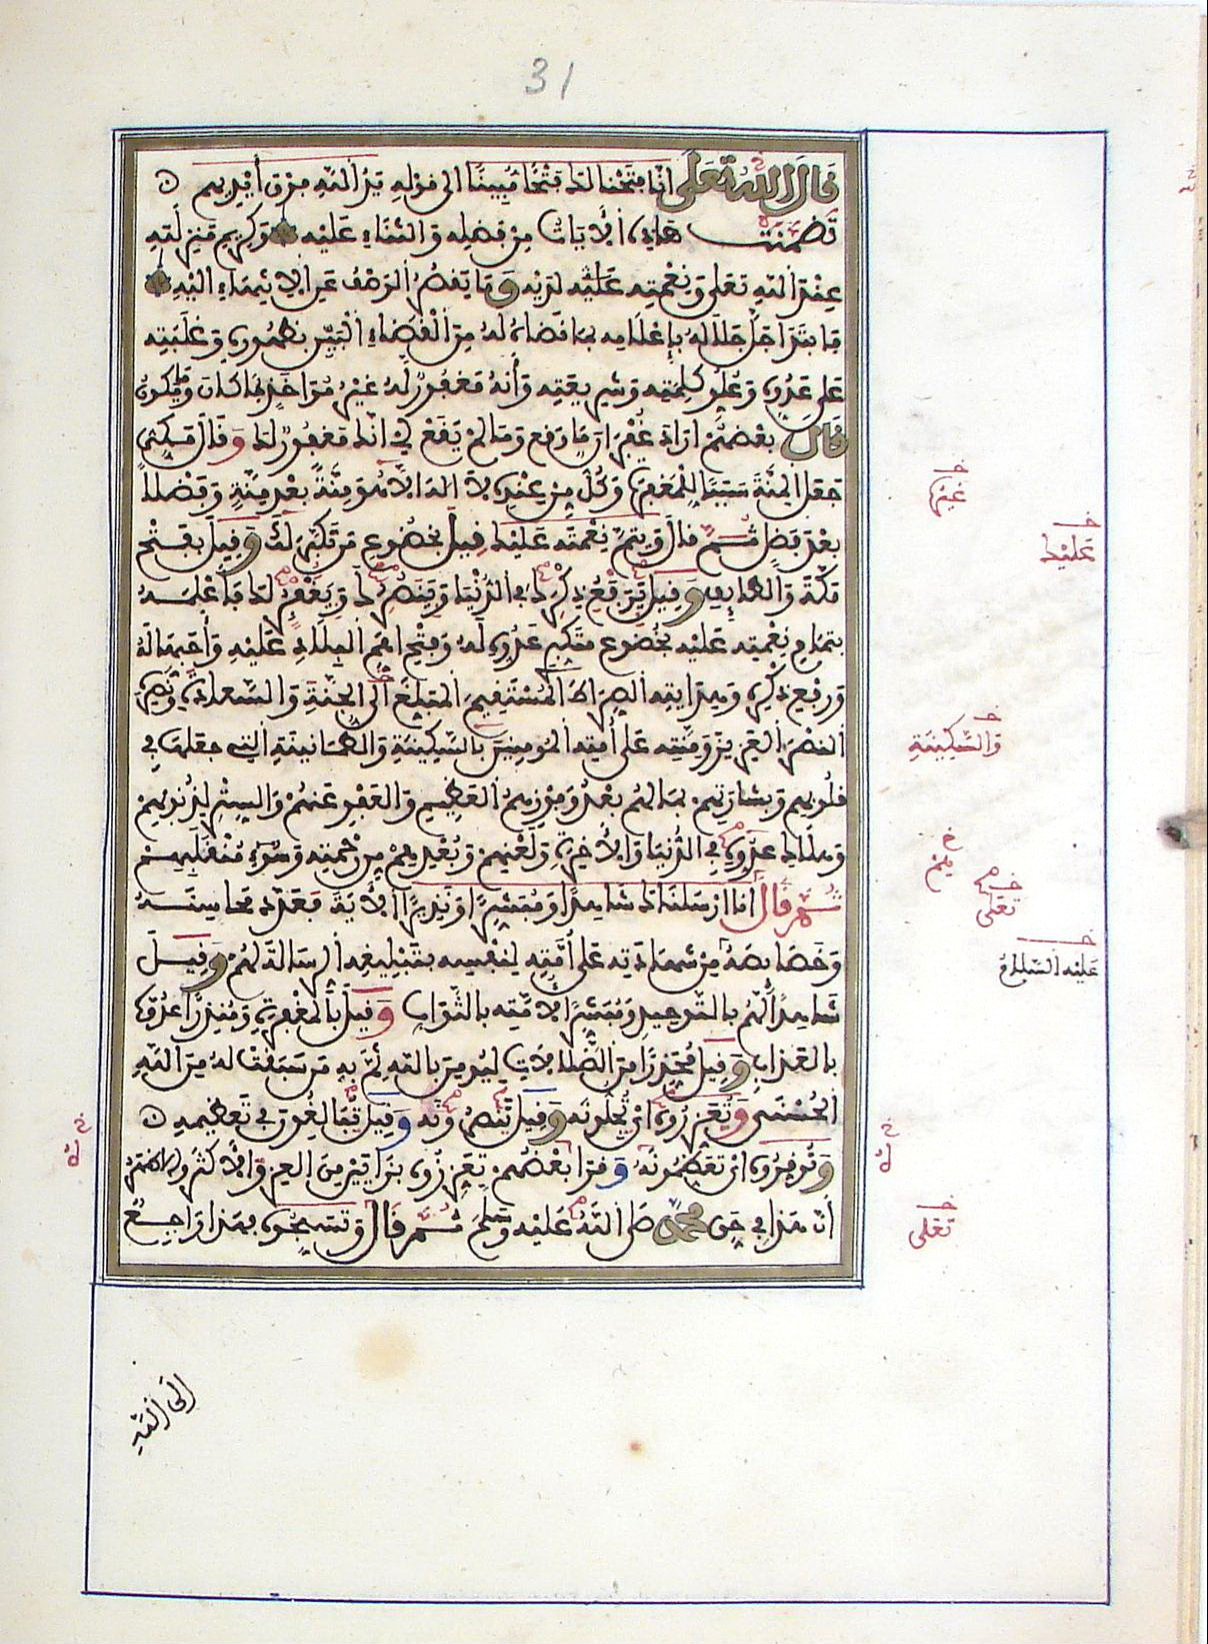 31
قال الله تعلى انا فتحنا لك فتحا مبينا الى قوله يد الله فوق أيديهم
تضمنت هاذه الايات من فضله والثناء عليه وكريم منزلته
عند الله تعلى ونعمته عليه لديه وما يقصر الوصف عن الانتهاء اليه
فابتدا جل جلاله بإعلامه بما قضاه له من القضاء البين بظهوره وغلبته
على عدوه وعلو كلمته وشريعته وأنه مغفور له غير مؤاخذ بما كان وما يكون
قال بعضهم اراد غفران ما وقع وما لم يقع اي انك مغفور لك وقال مكي
جعل المنة سببا للمغفرة وكل من عنده لا اله الا هو منة بعد منة وفضلا
بعد فضل ثم قال ويتم نعمته عليك قيل بخضوع من تكبر لك وقيل بفتح
مكة والطايف وقيل يرفع ذكرك في الدنيا وينصرك ويغفر لك فاعلمه
بتمام نعمته عليه بخضوع متكبر عدوه له وفتح اهم البلاد عليه وأحبها له
ورفيع ذكره وهدايته الصراط المستقيم المبلغ الى الجنة والسعادة ونصره
النصر العزيز ومنته على أمته المومنين بالسكينة والطمانينة التي جعلها في
قلوبهم وبشارتهم بما لهم بعد وفوزهم العظيم والعفو عنهم والستر لذنوبهم
وهلاك عدوه في الدنيا والاخرة ولعنهم وبعدهم من رحمته وسوء منقلبهم
ثم قال انا ارسلناك شاهدا ومبشرا ونذيرا الاية فعدد محاسنه
وخصائصه من شهادته على أمته لنفسه بتبليغه الرسالة لهم وقيل
شاهدا لهم بالتوحيد ومبشرا لامته بالثواب وقيل بالمغفرة ومنذرا عدوه
بالعذاب وقيل محذرا من الضلالات ليومن بالله ثم به من سبقت له من الله
الحسنى وتعزروه اي تجلونه وقيل تنصرونه وقيل تبالغون في تعظيمه
وتوقروه اي تعظمونه وقرا بعضهم تعززوه بزايين من العز والاكثر والاظهر
أن هذا في حق محمد صلى الله عليه وسلم ثم قال وتسبحوه بهذا راجع
غفر
عليك
والسكينة
هم
تعلى
عليه السلام
له
له
تعلى
الى الله